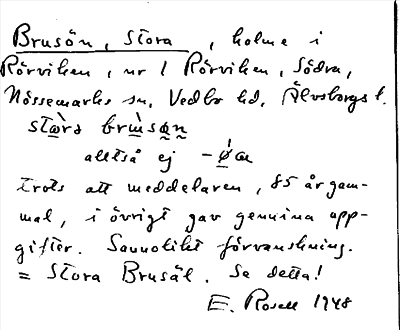 Brusön, Stora, holme i
Rörviken, nr 1 Rörviken, Södra,
Nössemarks sn, Vedbo hd, Älvsborgs l.
stὼra brɯ̀sąn
alltså ej -ǿa
trots att meddelaren, 85 årgam-
mal, i övrigt gav genuina upp-
gifter. Sannolikt förvanskning.
= Stora Brusäl. Se detta!
E. Rosell 1948